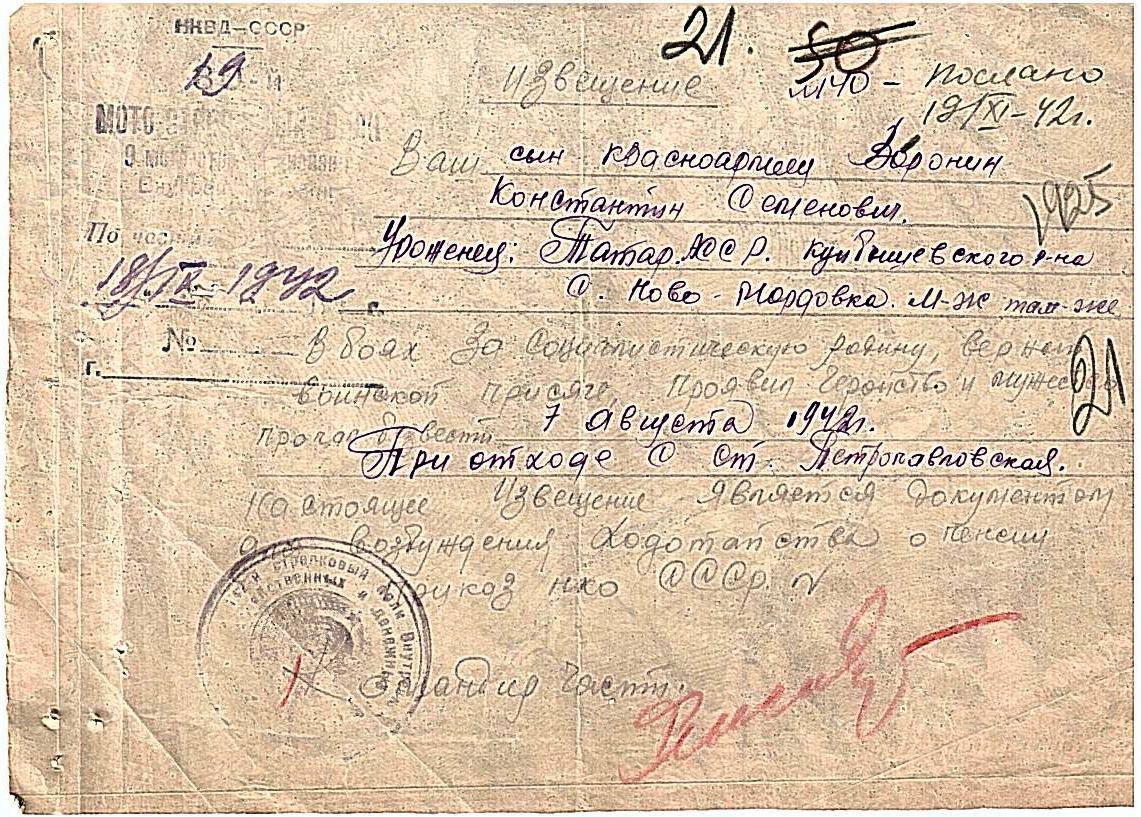 НКВД–СССР
19
21.
50
МЧО – послано
19/XI–42г.
Извещение
Ваш сын красноармеец Воронин
Константин Семенович.
1925
По части
Уроженец: Татар.АССР. Куйбышевского р-на
18/IX–1942 г.
с. Ново-Мордовка. М-ж там-же
№
г.
В боях за социалистическую родину, верный
воинской присяге, проявил геройство и мужество
21
пропал без вести 7 августа 1942г.
При отходе с ст. Петропавловская.
Настоящее извещение является документом
для возбуждения ходотайства о пенсии
Приказ НКО СССР. №
стрелковый полк Внутр
Командир части.